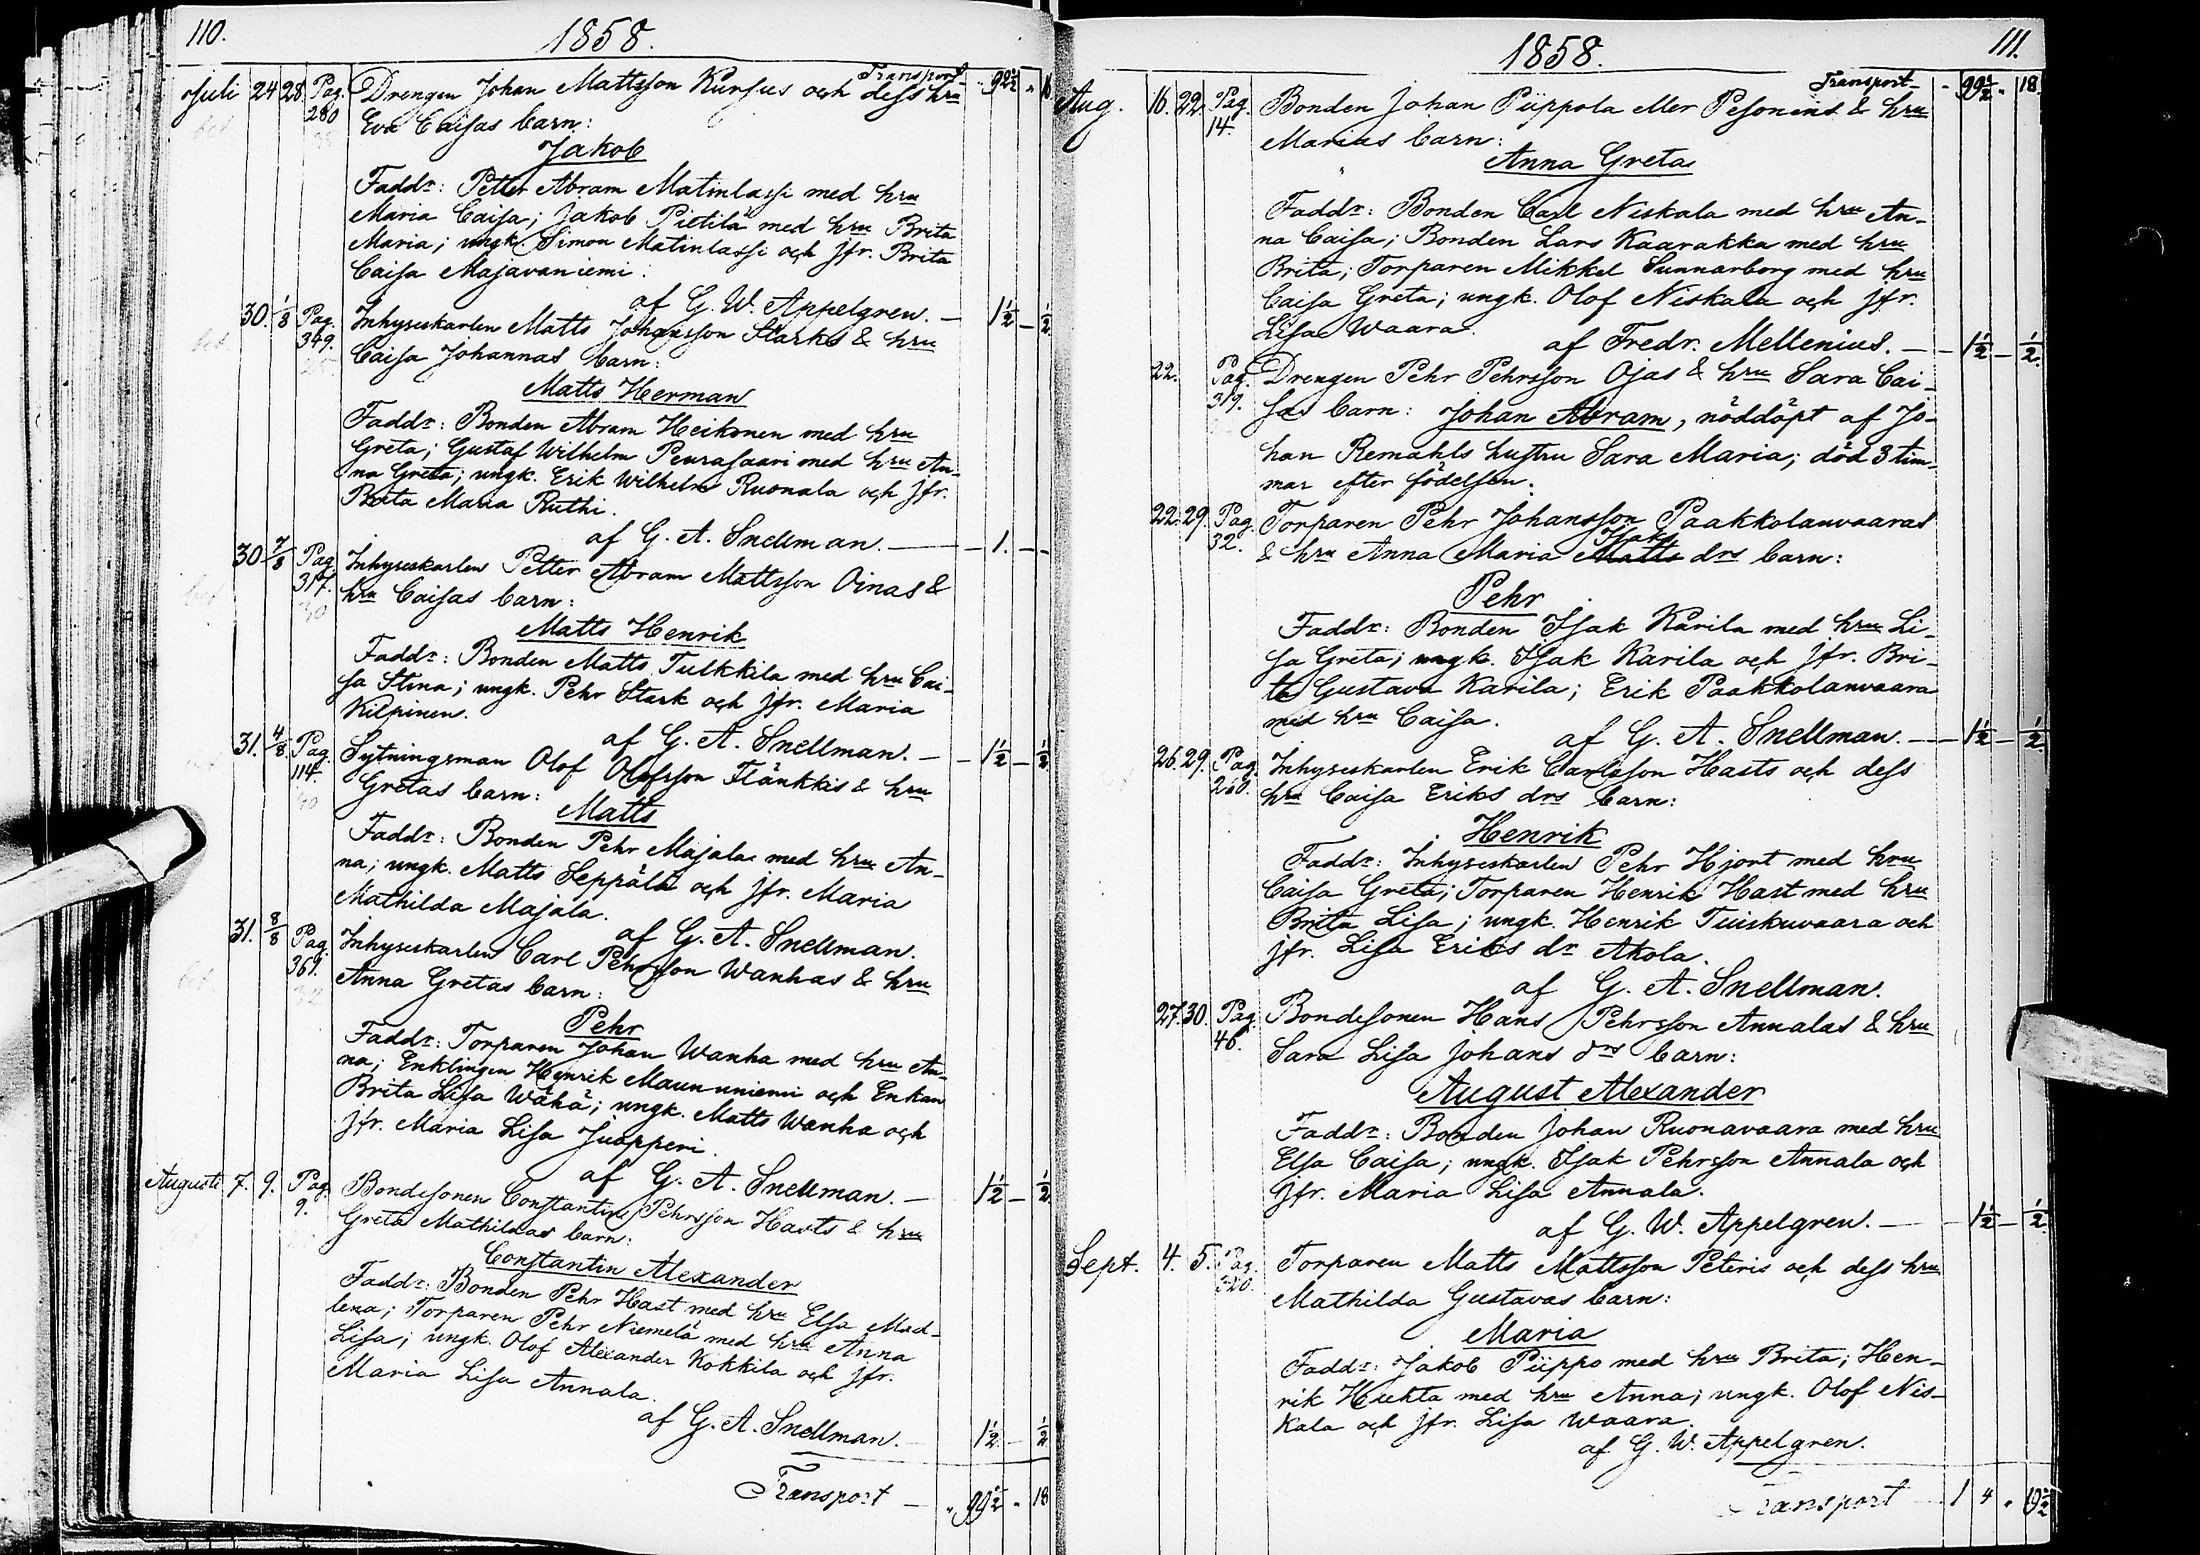 110.
1858.
Juli 24 28. Pag. 280 Drengen Johan Mattsson Kursus och dess hru Transport - 92½ " 16
Eva Caisas barn:
Jakob
Faddr: Petter Abram Matinlassi med hru
Maria Caisa; Jakob Pietilä med hru Brita
Maria; ungk. Simon Matinlassi och jfr. Brita
Caisa Majavaniemi.
af G. W. Appelgren. - 1½ - ½
30. 1/8 Pag. 349. Inhyseskarlen Matts Johansson Starks & hru
Caisa Johannas barn:
Matts Herman
Faddr: Bonden Abram Heikonen med hru
Greta; Gustaf Wilhelm Peurasaari med hru An-
na Greta; ungk. Erik Wilhelm Ruonala och jfr.
Brita Maria Ruthi.
af G. A. Snellman. - 1. -
30. 7/8 Pag. 317. Inhyseskarlen Petter Abram Mattsson Oinas &
hru Caisas barn:
Matts Henrik
Faddr: Bonden Matts Tulkkila med hru Cai-
sa Stina; ungk. Pehr Stark och jfr. Maria
Kilpinen.
af G. A. Snellman. - 1½ - ½
31. 4/8 Pag. 114. Sytningsman Olof Olofsson Flänkkis & hru
Gretas barn:
Matts
Faddr: Bonden Pehr Majala med hru An-
na; ungk. Matts Seppälä och jfr. Maria
Mathilda Majala.
af G. A. Snellman.
31. 8/8 Pag. 361. Inhyseskarlen Carl Pehrsson Wanhas & hru
Anna Gretas barn:
Pehr
Faddr: Torparen Johan Wanha med hru An-
na; Enklingen Henrik Maununiemi och Enkan
Brita Lisa Wähä; ungk. Matts Wanha och
jfr. Maria Lisa Juopperi.
af G. A. Snellman. - 1½ - ½
Augusti 7. 9. Pag. 9. Bondesonen Constantin Pehrsson Hasts & hru
Greta Mathildas barn:
Constantin Alexander
Faddr: Bonden Pehr Hast med hru Elsa Mad-
lena; Torparen Pehr Niemelä med hru Anna
Lisa; ungk. Olof Alexander Kokkila och jfr.
Maria Lisa Annala.
af G. A. Snellman. - 1½ - ½
Transport - " 99½ " 18
111.
1858.
Transport - - 99½ " 18.
Aug. 16. 22. Pag. 14. Bonden Johan Piippola eller Pesonens & hru
Marias barn:
Anna Greta
Faddr: Bonden Carl Niskala med hru An-
na Caisa; Bonden Lars Kaarakka med hru
Brita; Torparen Mikkel Sunnarborg med hru
Caisa Greta; ungk. Olof Niskala och jfr.
Lisa Waara.
af Fredr. Mellenius. - 1½ - ½
22. Pag. 319. Drengen Pehr Pehrsson Ojas & hru Sara Cai-
sas barn: Johan Abram, nöddöpt af Jo-
han Remahls hustru Sara Maria; död 3 tim-
mar efter födelsen.
22. 29. Pag. 32. Torparen Pehr Johansson Paakkolanvaaras
Isaks
& hru Anna Maria Matts drs barn:
Pehr
Faddr: Bonden Isak Karila med hru Li-
sa Greta; ungk. Isak Karila och jfr. Bri-
ta Gustava Karila; Erik Paakkolanvaara
med hru Caisa.
af G. A. Snellman. - 1½ - ½
26. 29. Pag. 260. Inhyseskarlen Erik Carlsson Hasts och dess
hru Caisa Eriks drs barn:
Henrik
Faddr: Inhyseskarlen Pehr Hjort med hru
Caisa Greta; Torparen Henrik Hast med hru
Brita Lisa; ungk. Henrik Tuiskuvaara och
jfr. Lisa Eriks dr Akola.
af G. A. Snellman.
27. 30. Pag. 46. Bondesonen Hans Pehrsson Annalas & hru
Sara Lisa Johans drs barn:
August Alexander
Faddr: Bonden Johan Ruonavaara med hru
Elsa Caisa; ungk. Isak Pehrsson Annala och
jfr. Maria Lisa Annala.
af G. W. Appelgren. - 1½ - ½
Sept. 4. 5. Pag. Torparen Matts Mattsson Peteris och dess hru
Mathilda Gustavas barn:
Maria
Faddr: Jakob Piippo med hru Brita; Hen-
rik Huhta med hru Anna; ungk. Olof Nis-
kala och jfr. Lisa Waara.
af G. W. Appelgren.
Transport 1 4 " 19½